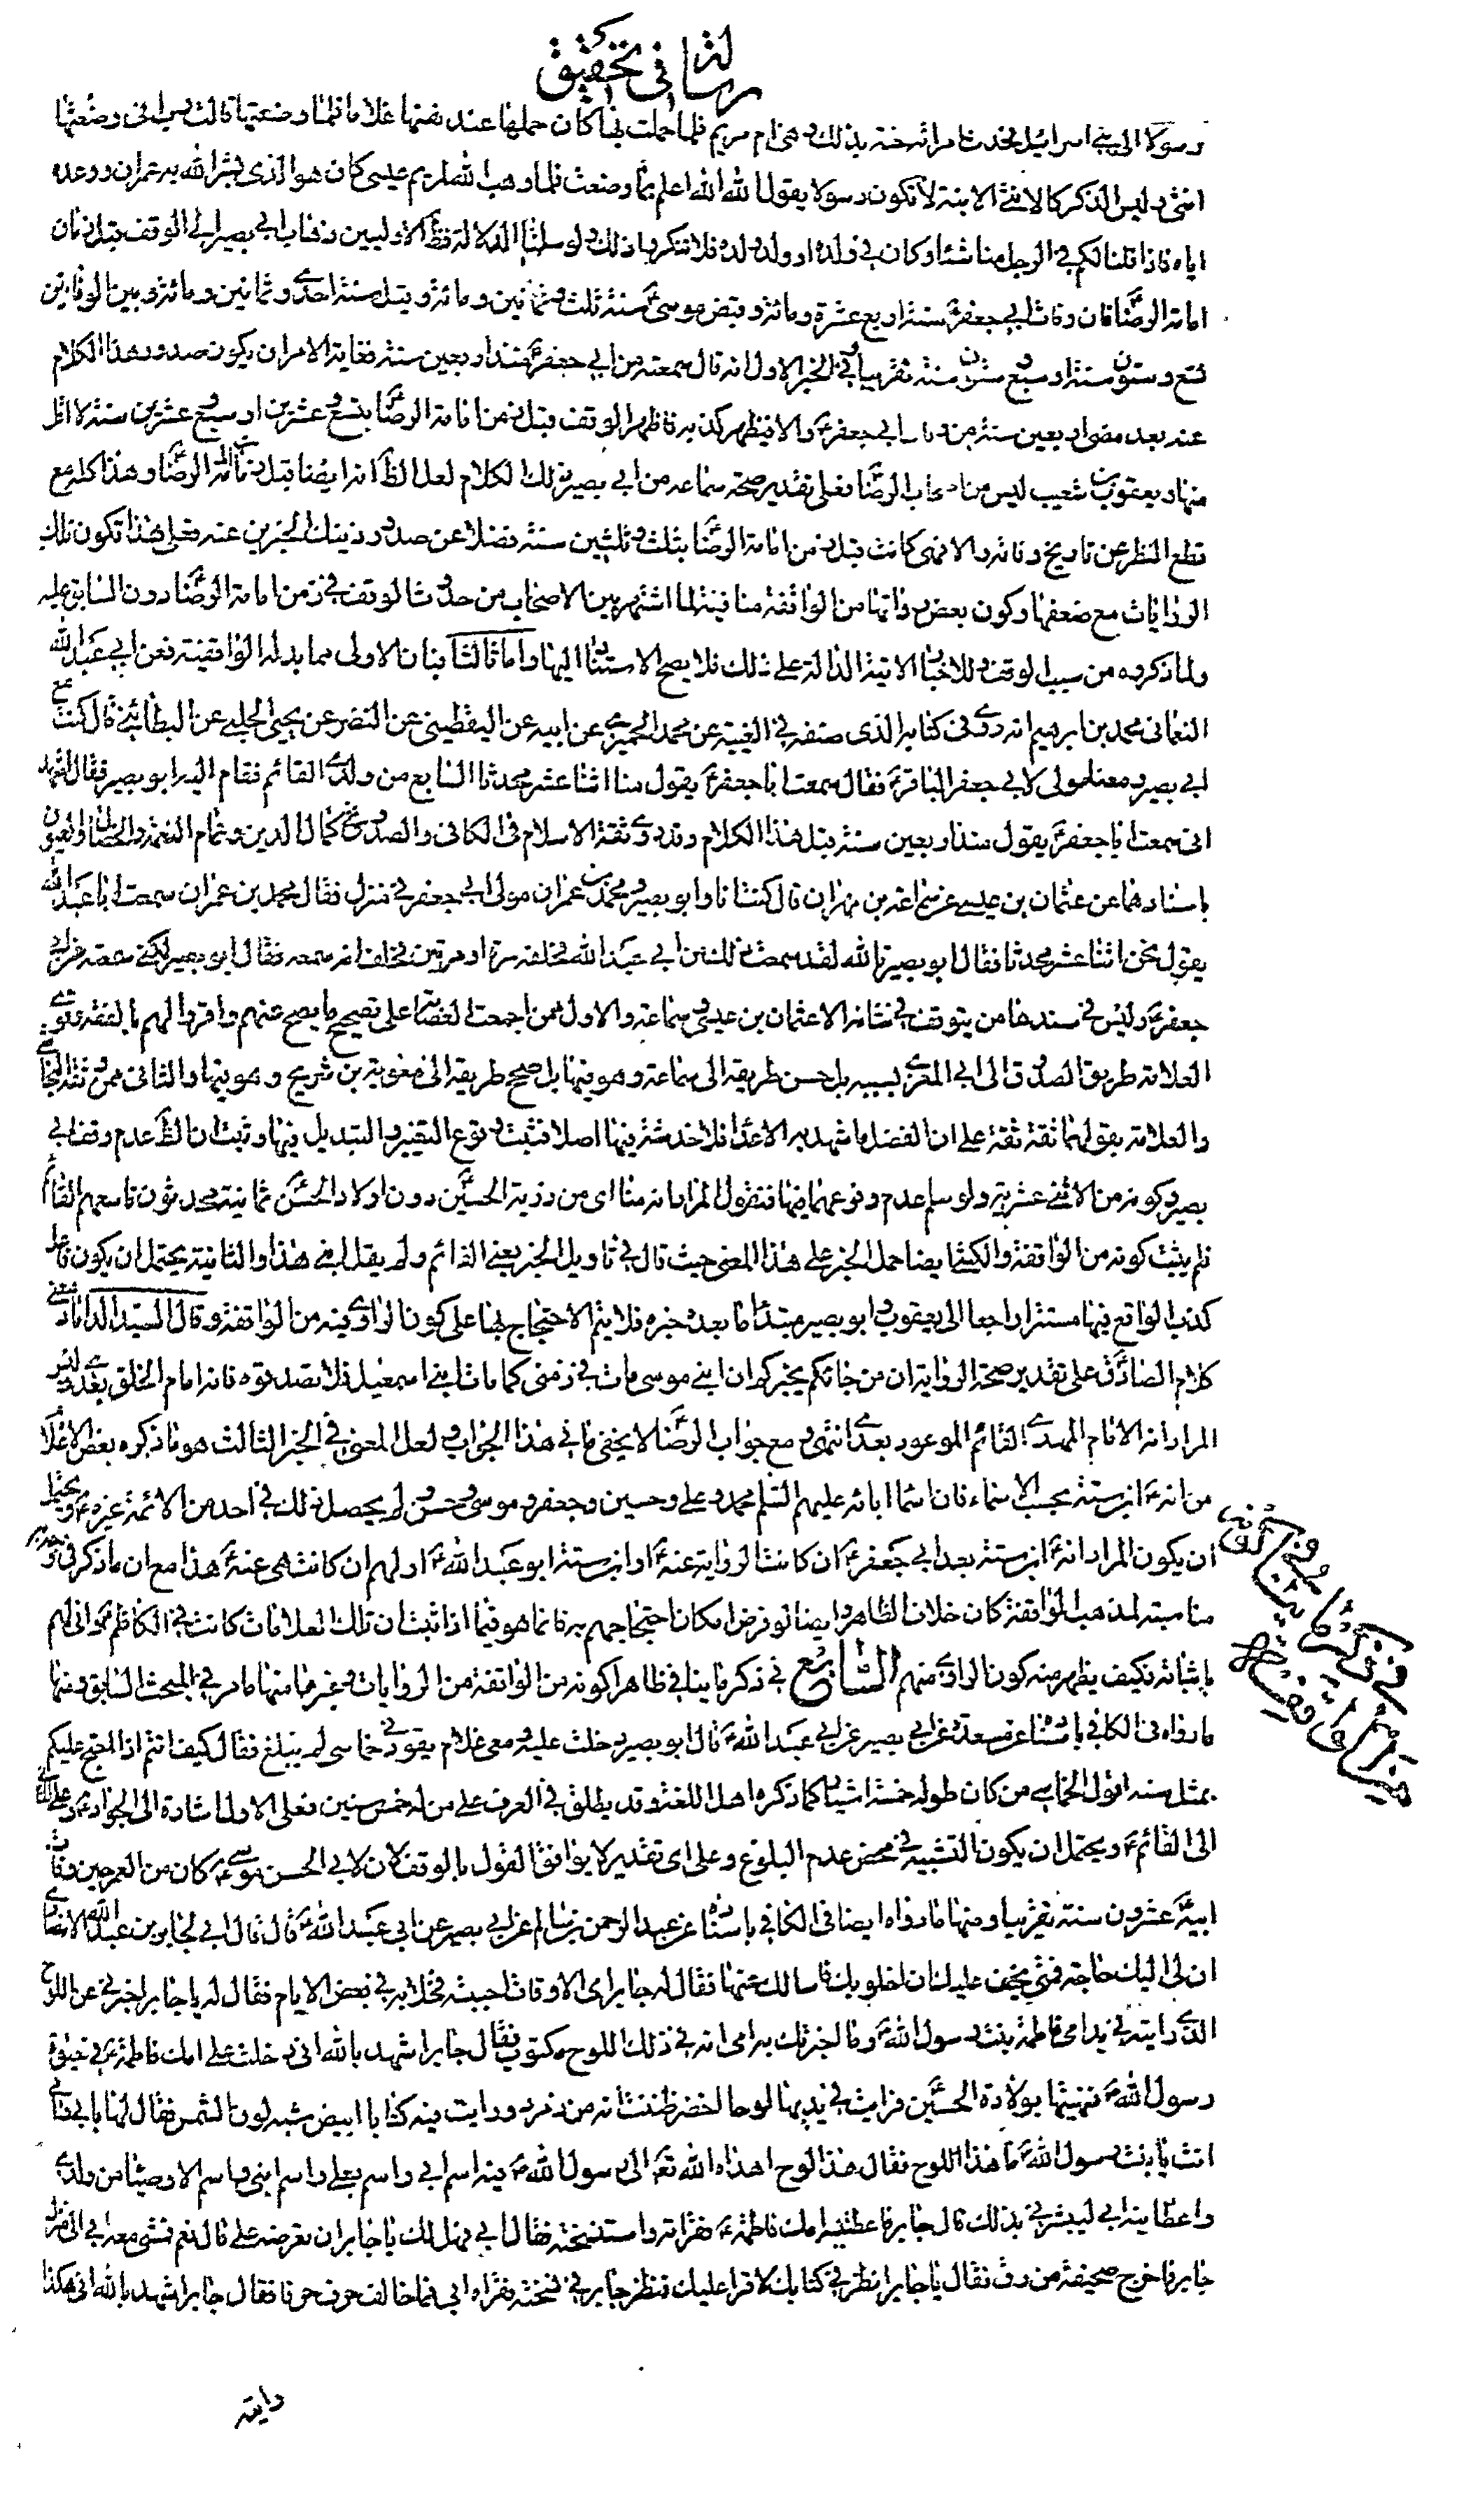 رسالة في تحقيق
رسولا الى بني اسرائيل فحدث امراته حنة بذلك وهي ام مريم فلما حملت بها كان حملها عند نفسها غلاما فلما وضعتها قالت رب اني وضعتها
انثى وليس الذكر كالانثى الابنة لا تكون رسولا يقول الله الله اعلم بما وضعت فلما وهب الله لمريم عيسى كان هو الذي بشر الله به عمران ووعده
اياه فاذا قلنا لكم في الرجل منا شيئا وكان في ولده او ولد ولده فلا تنكروا ذلك ولو سلمنا الدلالة فظ الاوليين ذهاب ابي بصير الى الوقف قبل زمان
امامة الرضا فان وفات ابي جعفر سنة اربع عشرة ومائة وقبض موسى سنة ثلث وثمانين ومائة وقيل سنة احدى وثمانين ومائة وبين الوفاتين
تسع وستون سنة او سبع ستون سنة تقريبا وفي الخبر الاول انه قال سمعته من ابي جعفر منذ اربعين سنة فغاية الامر ان يكون صدور هذا الكلام
عنه بعد مضي اربعين سنة من وفات ابي جعفر والا فيظهر كذبه فاظهر الوقف قبل زمن امامة الرضا بتسع وعشرين او سبع وعشرين سنة لا اقل
منها ويعقوب بن شعيب ليس من اصحاب الرضا فعلى تقدير صحة سماعه من ابي بصير ذلك الكلام لعل الظ انه ايضا قبل زمان امامة الرضا وهذا كله مع
قطع النظر عن تاريخ وفاته والا فهي كانت قبل زمن امامة الرضا بثلث وثلثين سنة فضلا عن صدور ذينك الخبرين عنه فعلى هذا تكون تلك
الروايات مع ضعفها وكون بعض رواتها من الواقفة منافية لما اشتهر بين الاصحاب من حدوث الوقف في زمن امامة الرضا دون السابق عليه
ولما ذكروه من سبب الوقف وللاخبار الاتية الدالة على ذلك فلا يصح الاستناد اليها واما ثالثا فبان الاولى مما بدله الواقفية فعن ابي عبد الله
النعماني محمد بن ابرهيم انه روى في كتابه الذي صنفه في الغيبة عن محمد الحميري عن ابيه عن اليقطيني عن النضر عن يحيى الحلبي عن البطائني قال كنت مع
ابي بصير ومعنا مولى لابي جعفر الباقر فقال سمعت ابا جعفر يقول منا اثنا عشر محدثا السابع من ولدي القائم فقام اليه ابو بصير فقال اشهد
اني سمعت ابا جعفر يقول منذ اربعين سنة قبل هذا الكلام وقد روى ثقة الاسلام في الكافي والصدوق في كمال الدين وتمام النعمة والخصال والعيون
باسنادهما عن عثمان بن عيسى عن سماعة بن مهران قال كنت انا وابو بصير ومحمد بن عمران مولى ابي جعفر في منزل فقال محمد بن عمران سمعت ابا عبد الله
يقول نحن اثنا عشر محدثا فقال ابو بصير تا لله لقد سمعت ذلك من ابي عبد الله فحلفه مرة او مرتين فحلف انه سمعه فقال ابو بصير لكني سمعته من ابي
جعفر وليس في سندها من يتوقف في شانه الا عثمان بن عيسى وسماعة والاول ممن اجمعت العصابة على تصحيح ما يصح عنهم واقروا لهم بالفقه وقوى
العلامة طريق الصدوق الى ابي المغرى بسببه بل حسن طريقه الى سماعة وهو فيها بل صحح طريقه الى معوية بن شريح وهو فيها والثاني ممن وثقه النجاشي
والعلامة بقولهما ثقة ثقة على ان الفضل ما شهد به الاعداء فلا خدشة فيها اصلا فثبت وقوع التغيير والتبديل فيها وثبت ان الظ عدم وقف ابي
بصير وكونه من الاثني عشرية ولو سلم عدم وقوعهما فيها فنقول المراد انه منا اي من ذرية الحسين دون اولاد الحسن ثمانية محدثون تاسعهم القائم
فلم يثبت كونه من الواقفة والكشي ايضا حمل الخبر على هذا المعنى حيث قال في تاويل الخبر يعني القائم ولم يقل ابني هذا والثانية يحتمل ان يكون فاعل
كذب الواقع فيها مستترا راجعا الى يعقوب وابو بصير مبتدا ما بعده خبره فلا يتم الاحتجاج بها على كون الراوي فيه من الواقفة وقال السيد الداماد معنى
كلام الصادق على تقدير صحة الرواية ان من جائكم يخبركم ان ابني موسى مات في زمني كما مات ابني اسمعيل فلا تصدقوه فانه امام الخلق بعدي وليس
المراد انه الامام المهدي القائم الموعود بعدي انتهى ومع جواب الرضا لا يخفى ما في هذا الجواب ولعل المعنى في الخبر الثالث هو ما ذكره بعض الاعلام
من انه ع ابن ستة بحسب الاسماء فان اسماء ابائه عليهم السلم محمد وعلي وحسين وجعفر وموسى وحسن ولم يحصل ذلك في احد من الائمة غيره ع ويحتمل
ان يكون المراد انه ابن ستة بعد ابي جعفر ان كانت الرواية عنه او ابن ستة ابو عبد الله ع اولهم ان كانت هي عنه هذا مع ان ما ذكر في توجيه
مناسبته لمذهب الواقفة كان خلاف الظاهر وايضا لو فرض امكان احتجاجهم به فانما هو فيما اذا ثبت ان تلك العلامات كانت في الكاظم ع واني لهم
باثباته فكيف يظهر منه كون الراوي منهم السابع في ذكر ما ينافي ظاهرا كونه من الواقفة من الروايات وغيرها منها ما مر في المبحث السابق ومنها
ما رواه في الكافي باسناد عن مسعدة عن ابي بصير عن ابي عبد الله ع قال ابو بصير دخلت عليه ومعي غلام يقودني خماسي لم يبلغ فقال كيف انتم اذا احتج عليكم
بمثل سنه اقول الخماسي من كان طوله خمسة اشبار كما ذكره اهل اللغة وقد يطلق في العرف على من له خمس سنين فعلى الاول اشارة الى الجواد ع وعلى الثاني
الى القائم ع ويحتمل ان يكون التشبيه في محض عدم البلوغ وعلى اي تقدير لا يوافق القول بالوقف لان لابي الحسن موسى ع كان من العمر حين وفات
ابيه ع عشرون سنة تقريبا ومنها ما رواه ايضا في الكافي باسناده عن عبد الرحمن بن سالم عن ابي بصير عن ابي عبد الله ع قال قال ابي لجابر بن عبد الله الانصاري
ان لي اليك حاجة فمتى يخف عليك ان اخلو بك فاسالك عنها فقال له جابر اي الاوقات احببته فخلا به في بعض الايام فقال له يا جابر اخبرني عن اللوح
الذي رايته في يد امي فاطمة بنت رسول الله ص وما اخبرتك به امي انه في ذلك اللوح مكتوب فقال جابر اشهد بالله اني دخلت على امك فاطمة ع في حيوة
رسول الله ص فهنيتها بولادة الحسين فرايت في يديها لوحا اخضر ظننت انه من زمرد ورايت فيه كتابا ابيض شبه لون الشمس فقال لها بابي وامي
انت يا بنت رسول الله ص ما هذا اللوح فقال هذا لوح اهداه الله تع الى رسول الله ص فيه اسم ابي واسم بعلي واسم ابني واسم الاوصياء من ولدي
واعطانيه ابي ليبشرني بذلك قال جابر فاعطتنيه امك فاطمة ع فقراته واستنسخته فقال ابي فهل لك يا جابر ان تعرضه علي قال نعم فمشى معه ابي الى منزل
جابر فاخرج صحيفة من رق فقال يا جابر انظر في كتابك لاقرا عليك فنظر جابر في نسخته فقراه ابي فما خالف حرف حرفا فقال جابر اشهد بالله اني هكذا
رايته